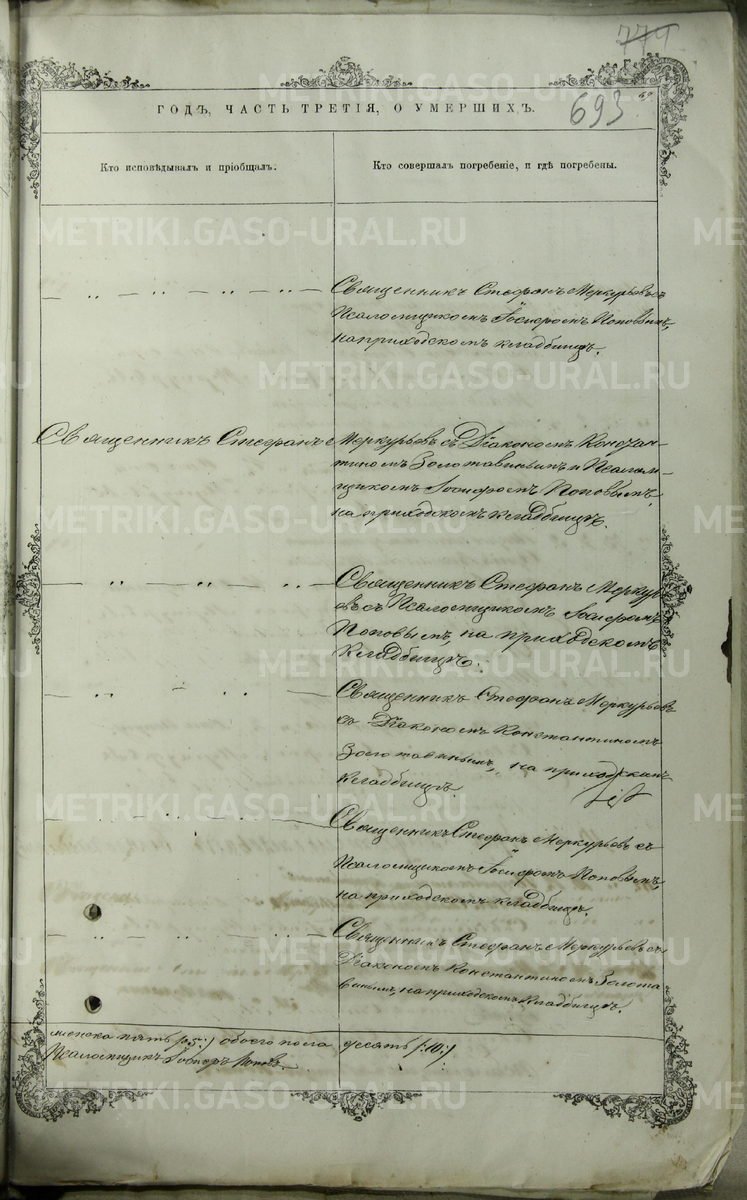 774
693
69
ГОДЪ, ЧАСТЬ ТРЕТІЯ, О УМЕРШИХЪ.
Кто исповѣдывалъ и пріобщалъ.
Кто совершалъ погребеніе, и гдѣ погребены.
Священникъ Стефанъ Меркурьевъ съ
Псаломщикомъ Іосифомъ Поповымъ,
на приходскомъ кладбищѣ.
Священникъ Стефанъ Меркурьевъ съ Діакономъ Констан-
тиномъ Золотавинымъ и Псалом-
щикомъ Іосифомъ Поповымъ,
на приходскомъ кладбищѣ.
Священникъ Стефанъ Меркурь
евъ съ Псаломщикомъ Іосифомъ
Поповымъ, на приходскомъ
кладбищѣ.
Священникъ Стефанъ Меркурьевъ
съ Діакономъ Константиномъ
Золотавинымъ, на приходскомъ
кладбищѣ.
Священникъ Стефанъ Меркурьевъ съ
Псаломщикомъ Іосифомъ Поповымъ,
на приходскомъ кладбищѣ.
Священникъ Стефанъ Меркурьевъ съ
Діакономъ Константиномъ Золота
винымъ, на приходскомъ кладбищѣ.
женска пять /:5:/ обоего пола десять /:10:/
Псаломщикъ Іосифъ Поповъ.
METRIKI.GASO-URAL.RU